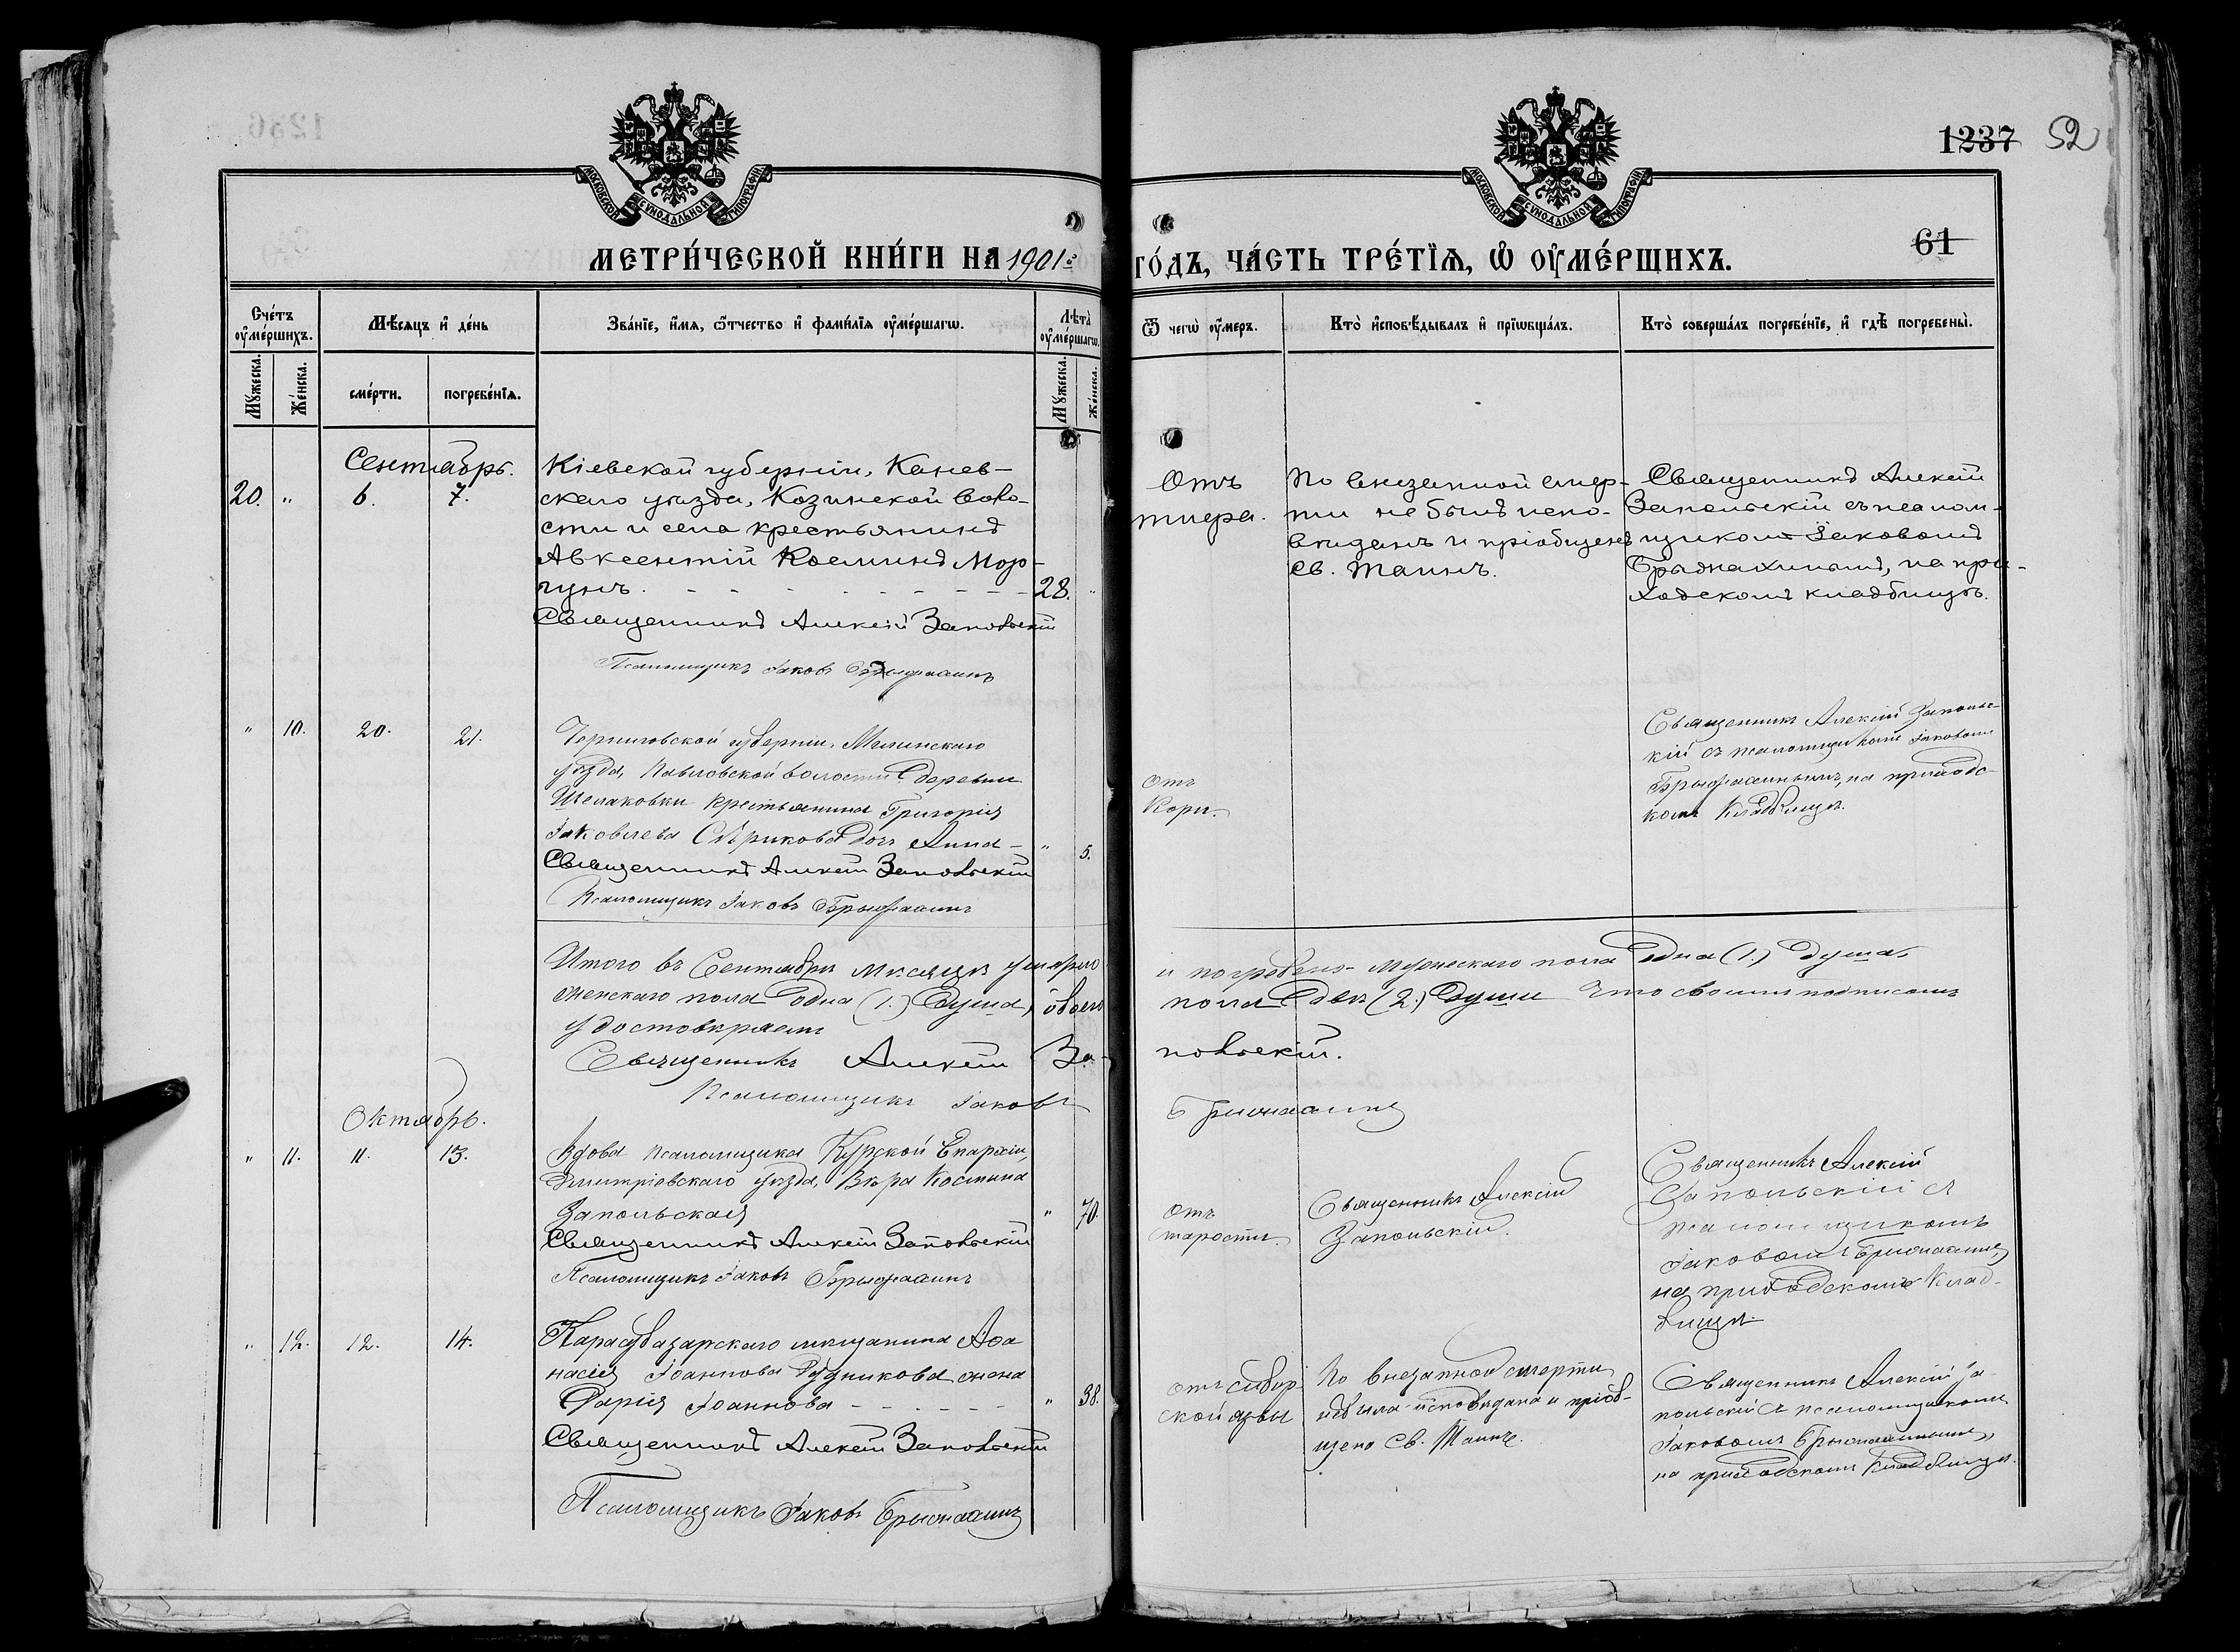 1237 52
МОСКОВСКОЙ СѴНОДАЛЬНОЙ ТИПОГРАФІИ
МОСКОВСКОЙ СѴНОДАЛЬНОЙ ТИПОГРАФІИ
61
МЕТРИ́ЧЕСКОЙ КНИ́ГИ НА 1901 г. ГО́ДЪ, ЧА́СТЬ ТРЕ́ТЇѦ, Ѡ҆ ОУ҆МЕ́РШИХЪ.
Сче́тъ оу҆ме́ршихъ.
Мꙋ́жеска.
Же́нска.
Мѣ́сѧцъ и҆ де́нь
сме́рти.
погребе́нїѧ.
Зва́нїе, и҆́мѧ, ѻ҆́тчество и҆ фами́лїѧ оу҆ме́ршагѡ.
Лѣ́та оу҆ме́ршагѡ.
Мꙋ́жеска.
Же́нска.
Ѿ чегѡ̀ оу҆́меръ.
Кто̀ и҆сповѣ́дывалъ и҆ прїѡбща́лъ.
Кто̀ соверша́лъ погребе́нїе, и҆ гдѣ̀ погребены̀.
Сентябрь.
20. " 6. 7.
Кіевской губерніи, Канев-
скаго уѣзда, Козинской воло-
сти и села крестьянинъ
Авксентій Косминъ Мор-
гунъ. 28. "
Священникъ Алексій Запольскій
Псаломщикъ Іаковъ
Отъ
тифа.
По внезапной смер-
ти не былъ испо-
вѣданъ и пріобщенъ
Св. Таинъ.
Священникъ Алексій
Запольскій съ псалом-
щикомъ Іаковомъ
на при-
ходскомъ кладбищѣ.
" 10. 20. 21.
Черниговской губерніи, Мглинскаго
уѣзда, Павловской волости, деревни
крестьянина Григорія
Іаковлева Сѣрикова дочь Анна - " 5.
Священникъ Алексій Запольскій
Псаломщикъ Іаковъ
Отъ
Кори.
Священникъ Алексій Заполь-
кій съ псаломщикомъ Іаковомъ
на приходс-
комъ кладбищѣ.
Итого въ Сентябрѣ мѣсяцѣ умерло и погребено мужескаго пола одна (1.) душа,
женскаго пола одна (1.) душа, обоего пола двѣ (2.) души что своими подписями
удостовѣряемъ
Священникъ Алексій Запольскій.
Псаломщикъ Іаковъ
Октябрь.
" 11. 11. 13.
Вдова псаломщика Курской Епархіи,
Дмитріевскаго уѣзда, Вѣра Космина
Запольская " 70.
Священникъ Алексій Запольскій
Псаломщикъ Іаковъ
Отъ
старости.
Священникъ Алексій
Запольскій.
Священникъ Алексій
Запольскій съ
псаломщикомъ
Іаковомъ
на приходскомъ клад-
бищѣ.
" 12. 12. 14.
Карасубазарскаго мѣщанина Аѳа
насія Іоаннова Рудникова жена
Дарія Іоаннова - - - - " 38.
Священникъ Алексій Запольскій
Псаломщикъ Іаковъ
Отъ сибир
ской язвы
По внезапной смерти
не была исповѣдана и пріоб-
щена Св. Таинъ.
Священникъ Алексій За-
польскій съ псаломщикомъ
Іаковомъ
на приходскомъ кладбищѣ.